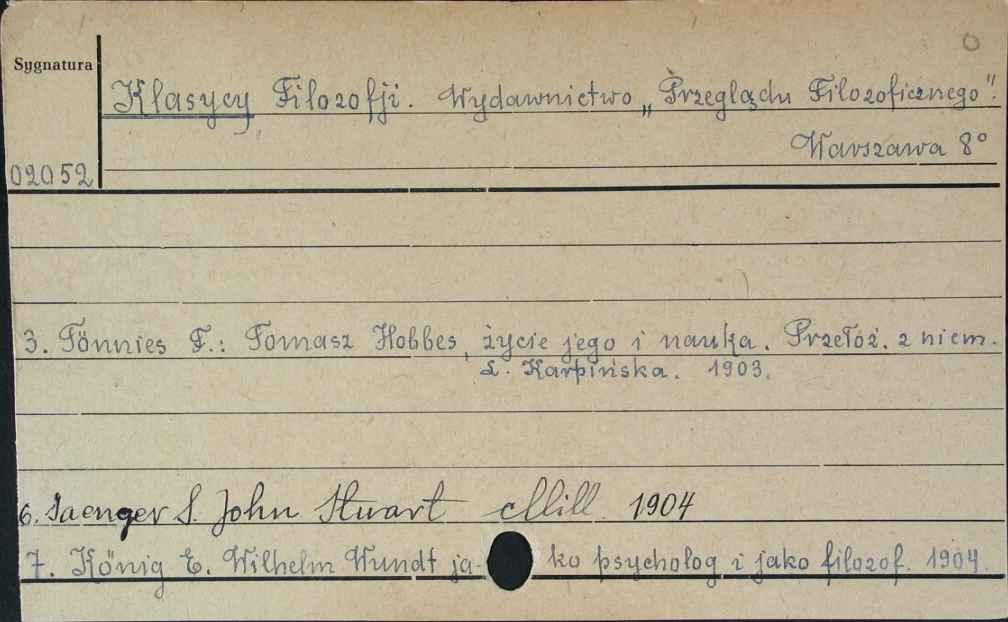 0
Sygnatura
Klasycy Filozofji. Wydawnictwo „Przeglądu Filozoficznego".
Warszawa 8°
02052
3. Tönnies F.: Tomasz Hobbes, życie jego i nauka. Przełoż. z niem.
L. Karpińska. 1903.
6. Saenger S. John Stuart Mill 1904
7. König E. Wilhelm Wundt ja- ko psycholog i jako filozof. 1904.